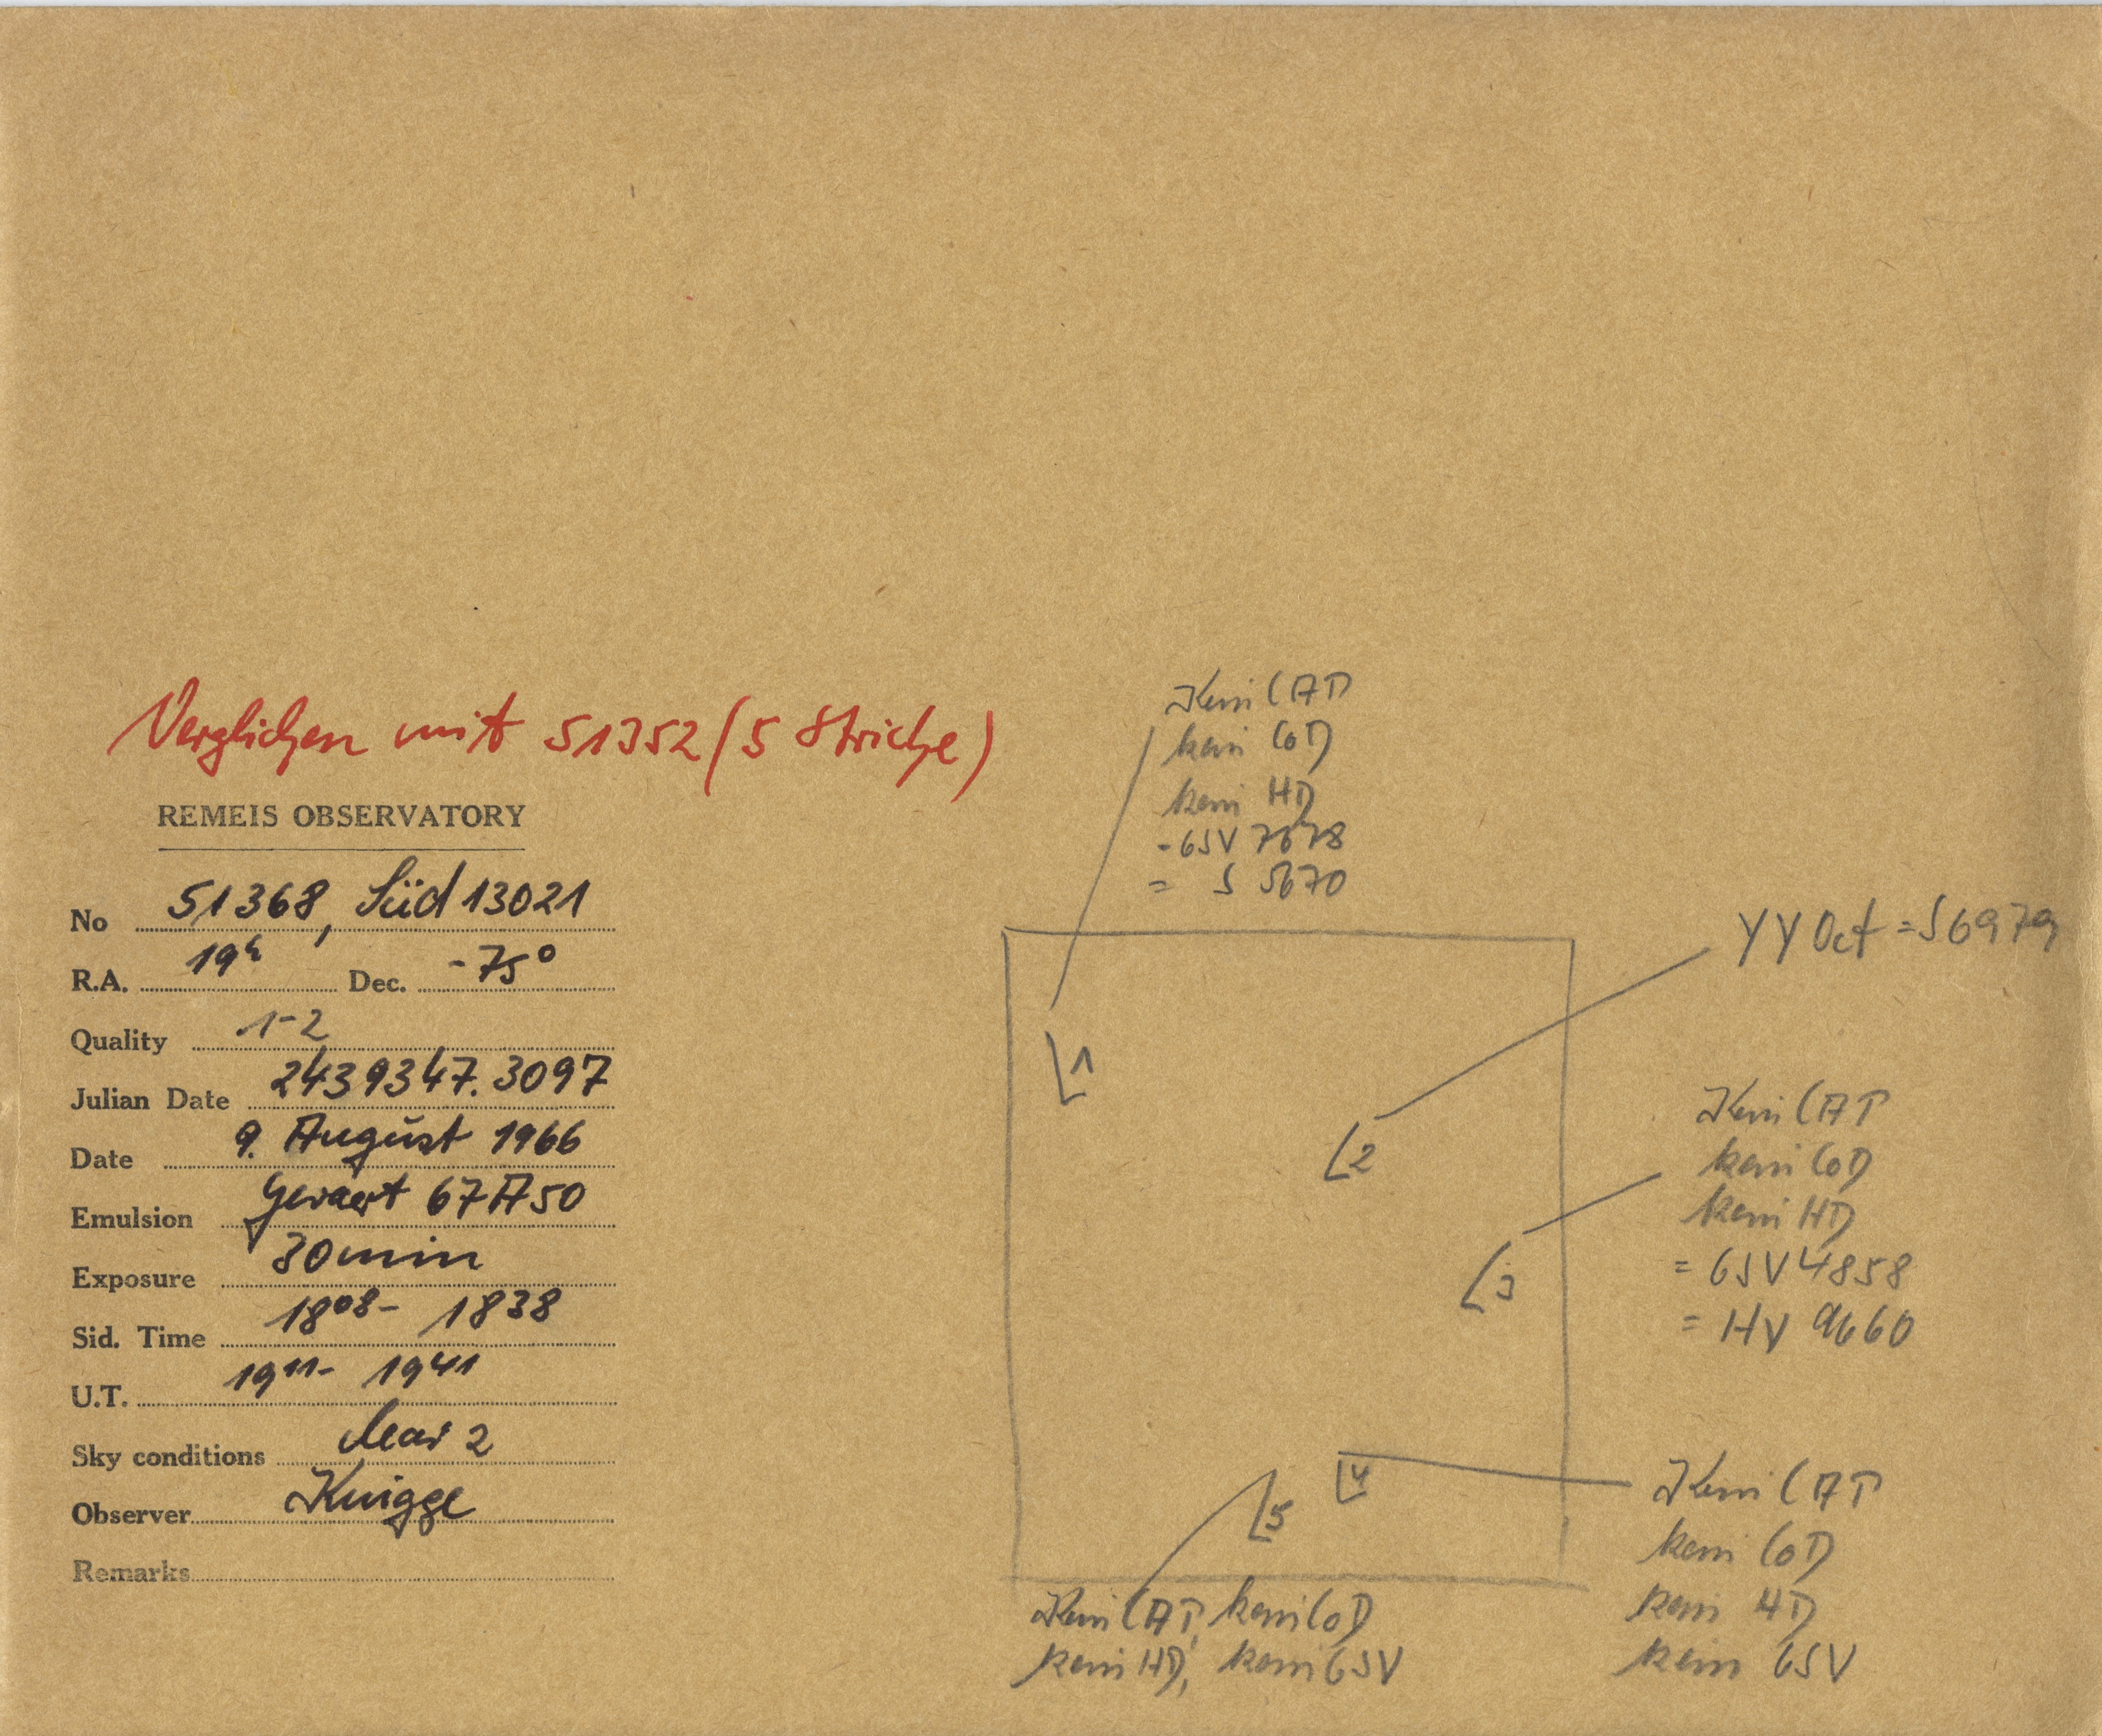 Verglichen mit 51352 (5 Striche)
REMEIS OBSERVATORY
No 51368, Süd 13021
R.A. 19h Dec. -75°
Quality 1-2
Julian Date 2439347.3097
Date 9. August 1966
Emulsion Gevaert 67A50
Exposure 30min
Sid. Time 18 08 - 18 38
U.T. 19 11 - 19 41
Sky conditions clear 2
Observer Knigge
Remarks
Kein CAP
kein CoD
kein HD
= CSV
= S 5670
1
YY Oct = S6979
2
Kein CAP
kein CoD
kein HD
= CSV 4858
= HV 9660
3
4
Kein CAP
kein CoD
kein HD
kein CSV
5
Kein CAP, kein CoD
kein HD, kein CSV